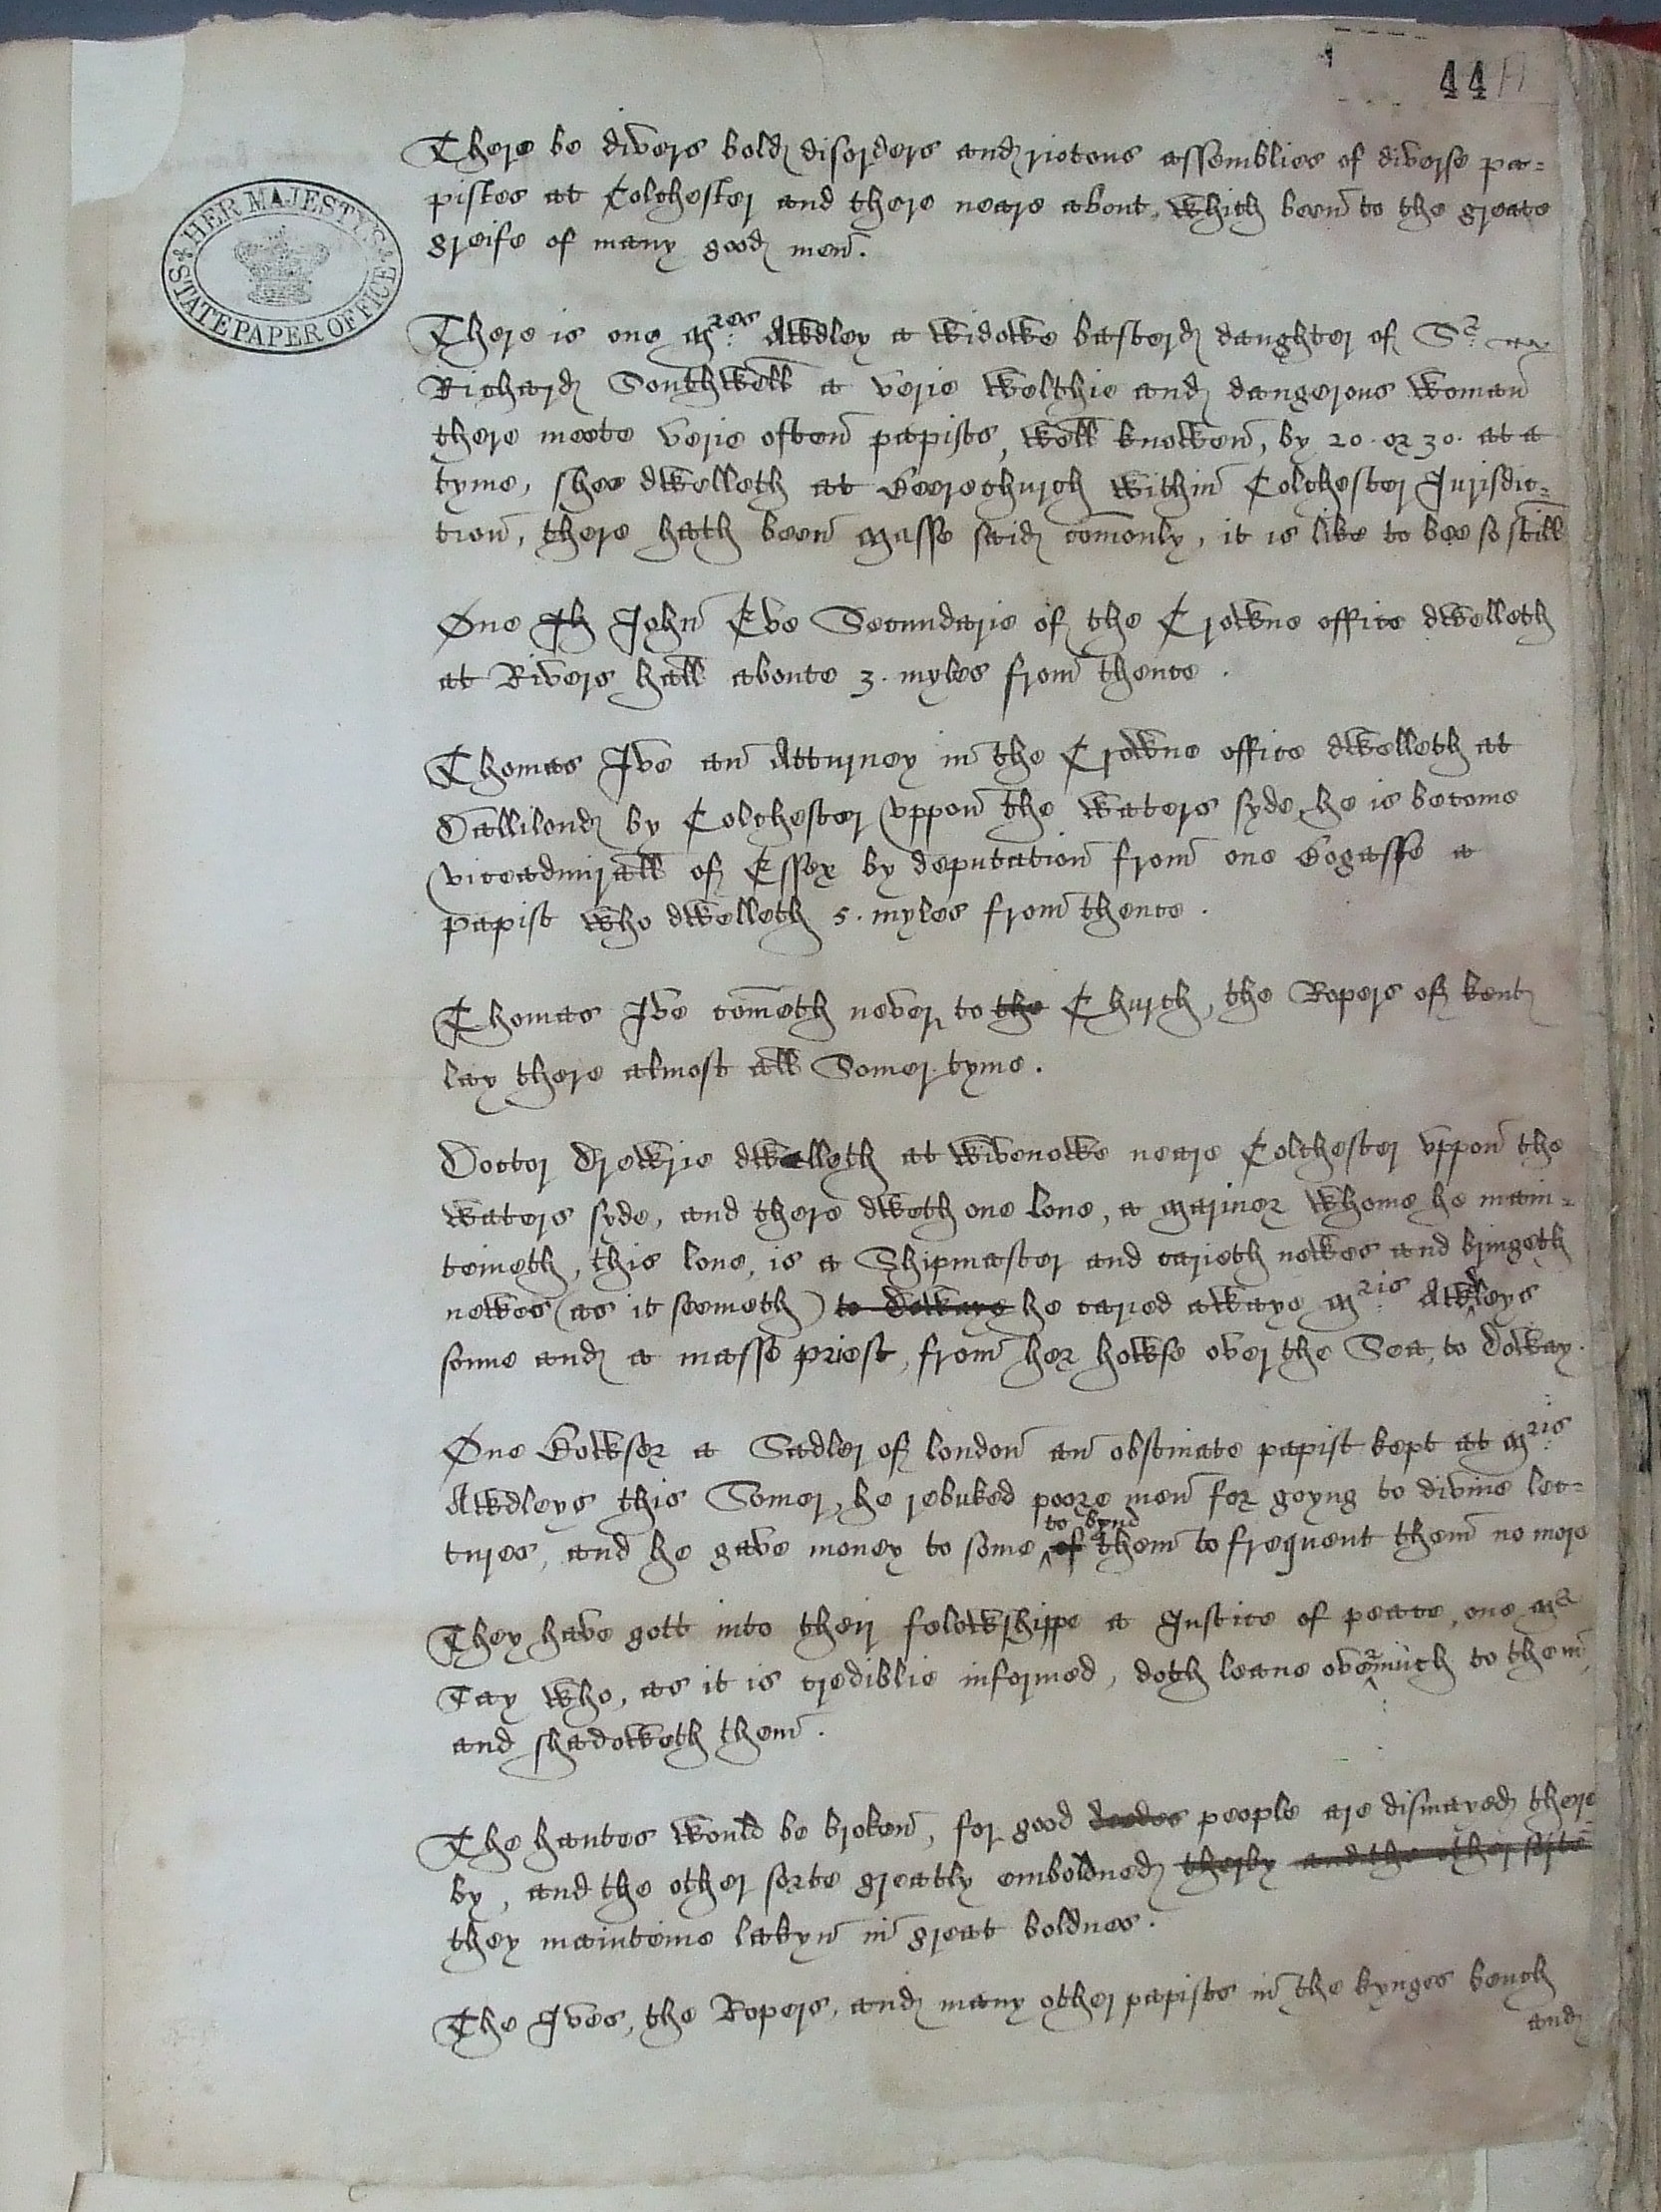 44
HER MAJESTY'S
STATE PAPER OFFICE
There be divers bold disorders and riotous assemblies of diverse pa=
pistes at Colchester and there neare about, which been to the greate
greife of many good men.
There is one Mres Awdley a widowe basterd daughter of Sr
Richard Southwell a verie welthie and dangerous woman
there meete verie often papists, well knowen, by 20. or 30. at a
tyme, shee dwelleth at Beerechurch within Colchester Jurisdic=
tion, there hath been Masse said comonly, it is like to bee so still
One Jh John Eve Secundarie of the Crowne office dwelleth
at Rivers hall aboute 3. myles from thence.
Thomas Ive an Atturney in the Crowne office dwelleth at
Dallilond by Colchester uppon the waters syde, he is become
viceadmirall of Essex by deputation from one Bogasse a
papist who dwelleth 5. myles from thence.
Thomas Ive cometh never to the Church, the Ropers of kent
lay there almost all Somer tyme.
Doctor Drewrie dwelleth at wivenowe neare Colchester uppon the
waters syde, and there dweth one lone, a Mariner whome he main=
teineth, this lone, is a Shipmaster and carieth newes and bringeth
newes (as it seemeth) to Dowaye he caried awaye Mris Awdleys
sonne and a masse priest, from her howse over the Sea, to Doway.
One Bowser a Sadler of london an obstinate papist kept at Mris
Awdleys this Somer, he rebuked poore men for goyng to divine lec=
to bynd
tures, and he gave money to some of them to frequent them no more
They have gott into their felowshippe a Justice of peace, one Mr
Tay who, as it is crediblie informed, doth leane overmuch to them,
and shadoweth them.
The hantes would be broken, for good deedes people are dismayed there
by, and the other sorte greatly emboldned therby and the other sorte
they mainteine lakyn in great boldnes.
The Ives, the Ropers, and many other papists in the kynges bench
and